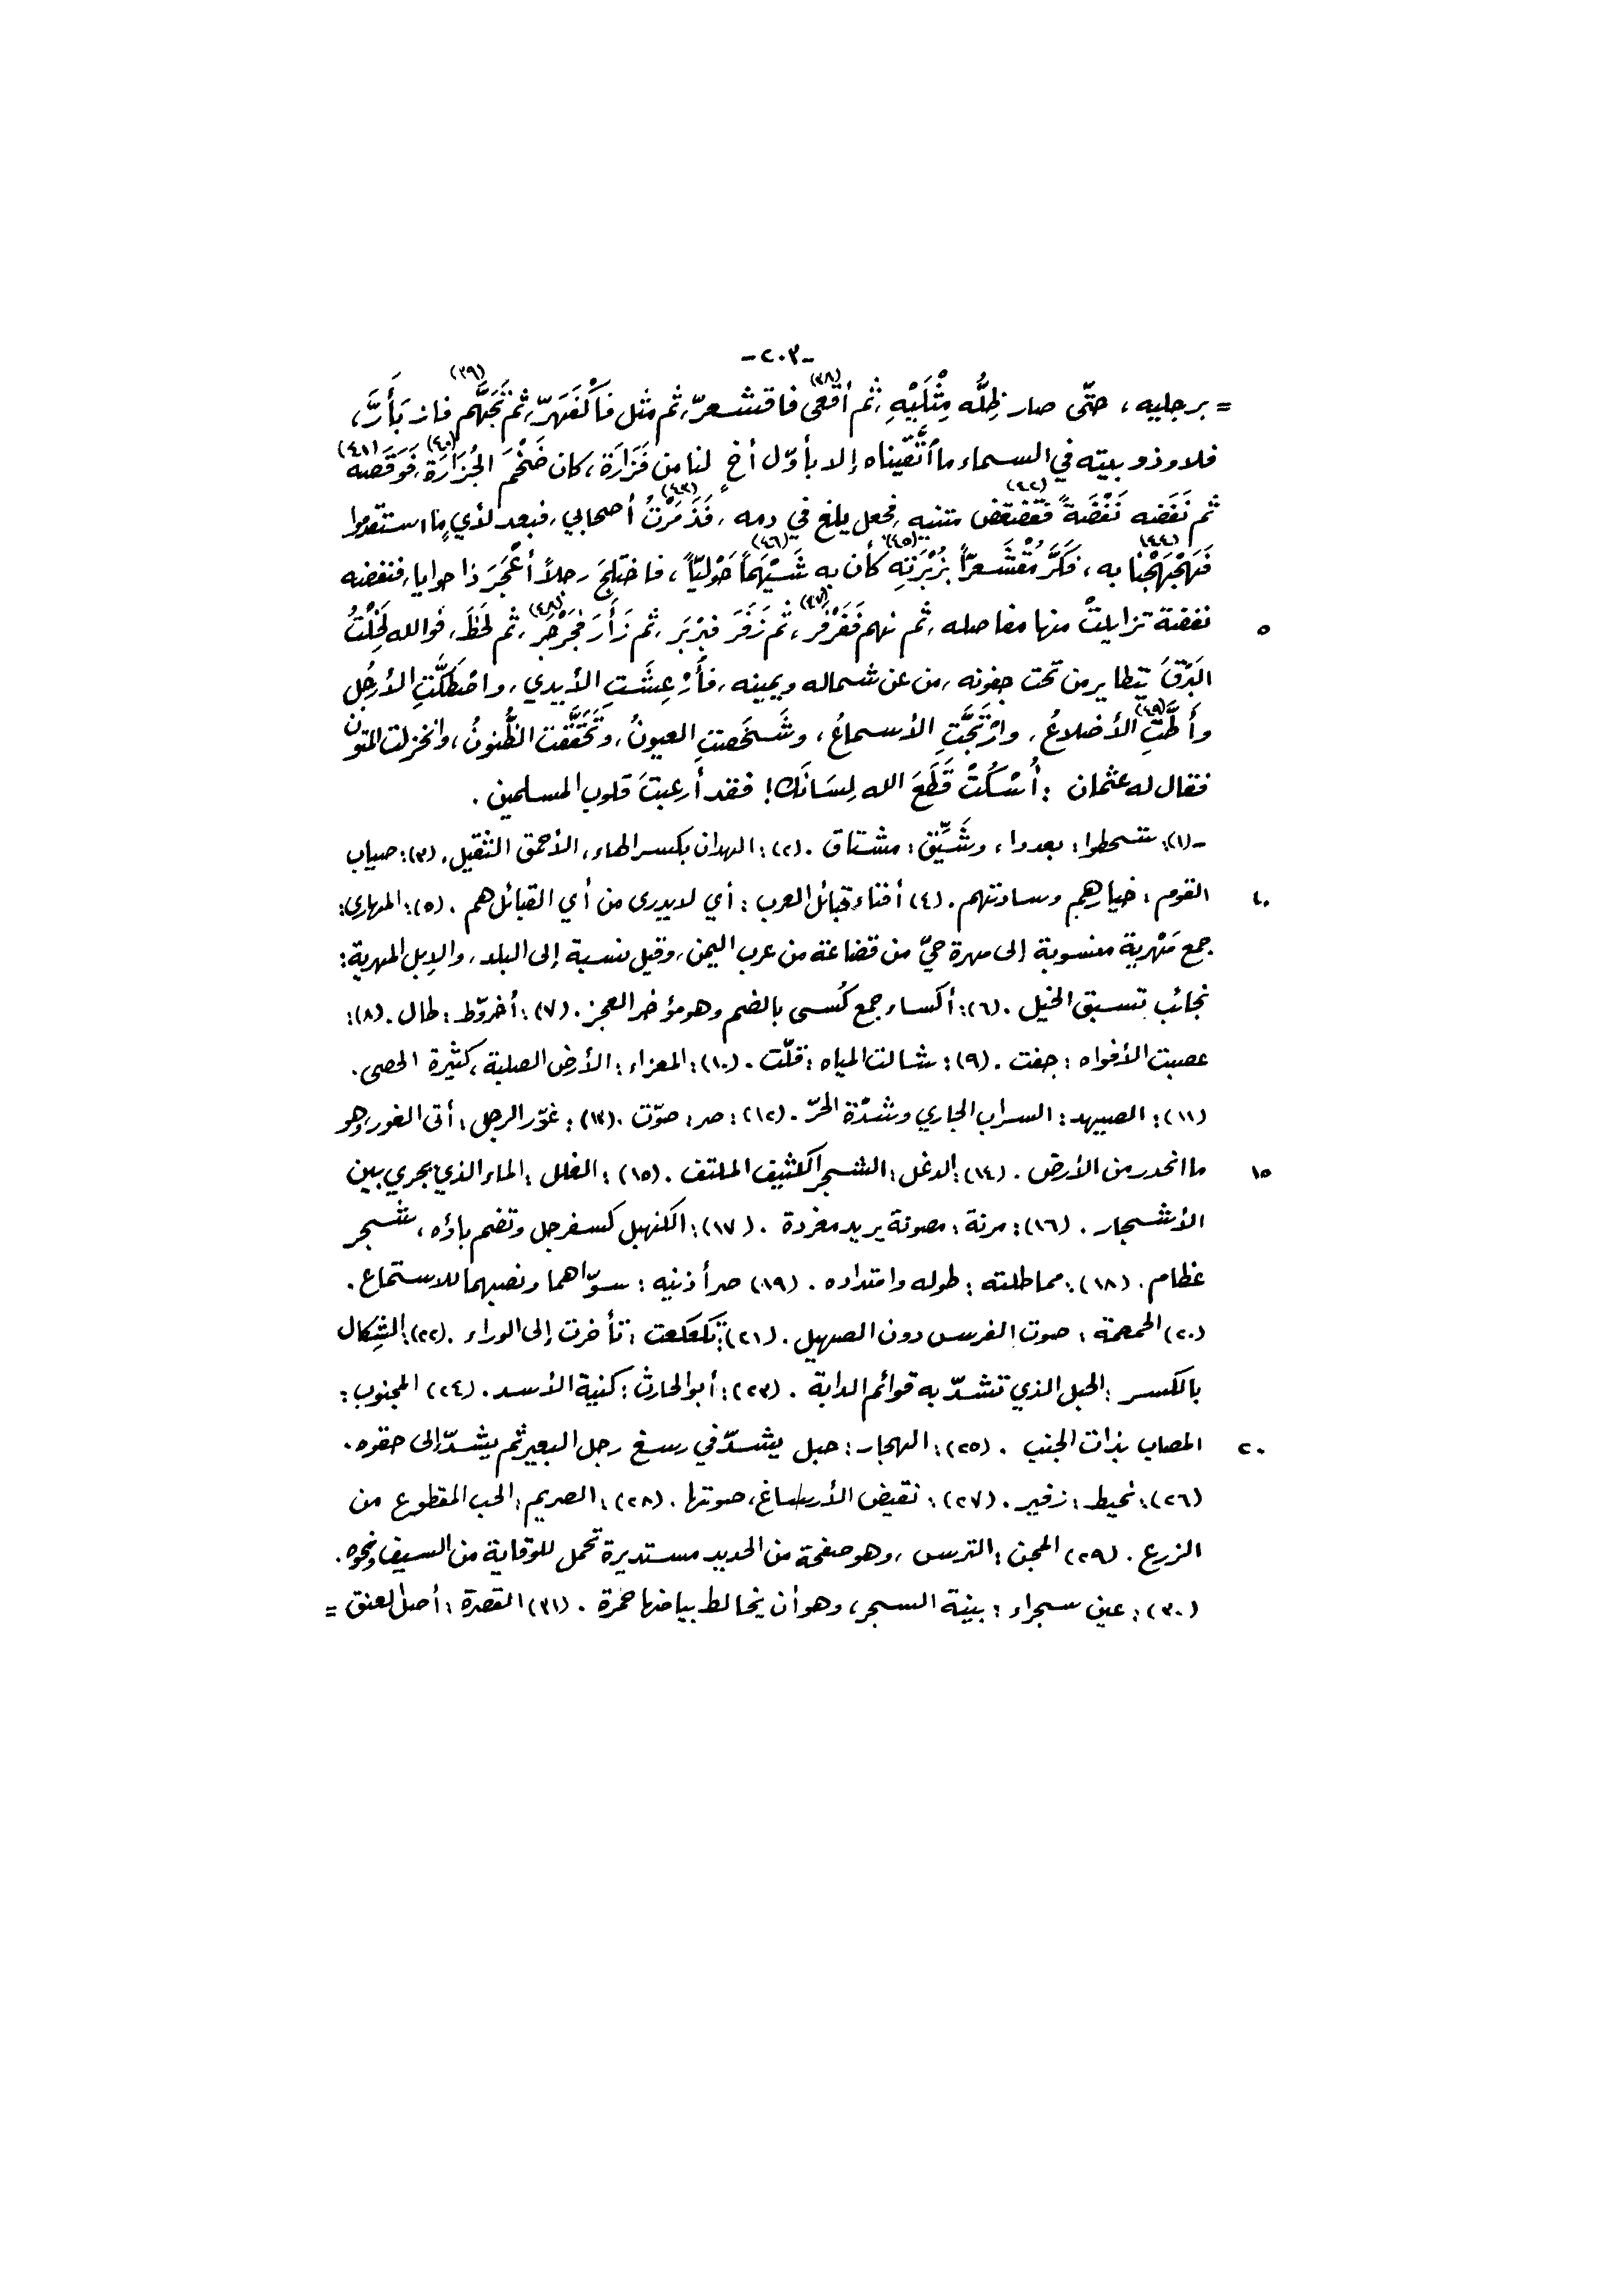 -٢٠٣-
= برجليه، حتّى صار ظِلُّه مِثْلَيْهِ، ثم أقعى(٣٨) فاقشعرّ، ثم مثل فأكْفَهَرّ، ثم تَجَهَّم(٣٩) فازبَأَرَّ،
فلا وذو بيته في السماء ما اتَّقيناه إلا بأوّل أخٍ لنا من فَزَارَة، كان ضَخْمَ الجُزَارَة(٤٠)، فَوَقَصَه(٤١)
ثم نَفَضه نَفْضَةً فقضقض(٤٢) متنيه، فجعل يلغ في دمه، فَذَمَرْتُ(٤٣) أصحابي، فبعد لأيٍ ما استقدموا
فَهَجْهَجْنا(٤٤) به، فكَرَّ مُقْشَعِرّاً بزُبْرَتِه(٤٥) كأن به شَيْهَماً(٤٦) حَوْليّاً، فاختلجَ رجلاً أعْجَرَ ذا حوايا، فنفضه
نفضة تزايلتْ منها مفاصله، ثم نهم فَفَرْفَر(٤٧)، ثم زَفَرَ فبَرْبَر، ثم زَأَرَ فجَرْجَر(٤٨)، ثم لحَظَ، فوالله لَخِلْتُ
٥
البَرْقَ يتطاير من تحت جفونه، من عن شماله ويمينه، فأُرْعِشَتِ الأيدي، واصْطَكَّتِ الأرجُل
وأَطَّتِ(٤٩) الأضلاعُ، وارْتَجَّتِ الأسماعُ، وشَخَصَتِ العيونُ، وتَحَقَّقَت الظُّنونُ، وانخزلت المتون
فقال له عثمان : أُسْكُتْ قَطَعَ الله لِسَانَك! فقد أرعبتَ قلوب المسلمين .
-(١): شحطوا: بعدوا، وشَيِّق: مشتاق .(٢): الهدان بكسر الهاء، الأحمق الثقيل. (٣): صياب
القوم: خيارهم وسادتهم. (٤) أفناء قبائل العرب : أي لا يدرى من أي القبائل هم . (٥): المهاري:
١٠
جمع مَهْرية منسوبة إلى مهرة حيّ من قضاعة من عرب اليمن، وقيل نسبة إلى البلد، والإبل المهرية:
نجائب تسبق الخيل . (٦): أكساء جمع كُسى بالضم وهو مؤخر العجز. (٧): أخروّط: طال. (٨):
عصبت الأفواه : جفت . (٩): شالت المياه : قلّت . (١٠): المعزاء : الأرض الصلبة، كثيرة الحصى.
(١١): الصيهد: السراب الجاري وشدّة الحرّ . (١٢): صر: صوّت . (١٣): غوّر الرجل: أتى الغور وهو
ما انحدر من الأرض . (١٤): الدغل: الشجر الكثيف الملتف . (١٥): الغلل : الماء الذي يجري بين
١٥
الأشجار . (١٦): مرنة : مصوتة يريد مغردة . (١٧): الكنهبل كسفرجل وتضم باؤه، شجر
عظام. (١٨): مماطلته : طوله وامتداده . (١٩) صر أذنيه : سوّاهما ونصبهما للاستماع .
(٢٠) الحمحمة : صوت الفرس دون الصهيل. (٢١): تكعكعت : تأخرت إلى الوراء . (٢٢): الشِكال
بالكسر : الحبل الذي تشدّ به قوائم الدابة . (٢٣): أبو الحارث: كنية الأسد. (٢٤) المجنوب:
المصاب بذات الجنب . (٢٥): الهجار: حبل يشدّ في رسغ رجل البعير ثم يشدّ إلى حقوه .
٢٠
(٢٦): نحيط: زفير. (٢٧): نقيض الأرساغ، صوتها . (٢٨): الصريم: الحب المقطوع من
الزرع . (٢٩) المجن : الترس، وهو صفحة من الحديد مستديرة تحمل للوقاية من السيف ونحوه .
(٣٠): عين سجراء : بينة السجر، وهو أن يخالط بياضها حمرة . (٣١) القصرة : أصل العنق =